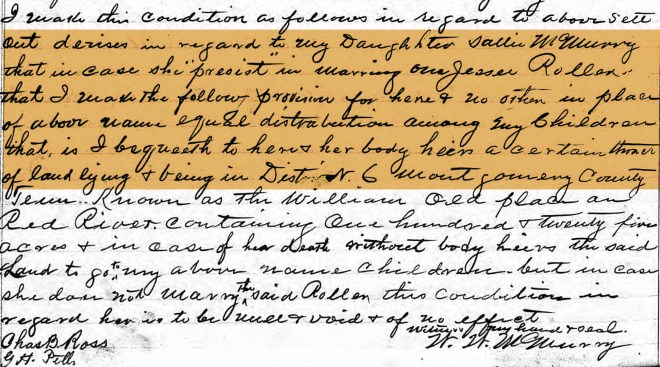 I make this condition as follows in regard to above sett
out devises in regard to my Daughter Sallie McMurry
that in case she "presist" in marring one Jesser Rollen
that I make the follow provision for here & no other in place
of above name equal distrabution among my Children
that is I bequeeth to here & her body heirs a certain
of land lying & being in Dist. N. 6 Montgomery County
Tenn. Known as the William Old place on
Red River. Containing One hundred & twenty five
acres & in case of her death without body heirs the said
Land to go to my above name Children - but in case
she dose not marry the said Rollen this condition in
regard her is to be null & void & of no effect
witness my hand & seal.
Chas B Ross
W. W. McMurry
G. H. Pitts